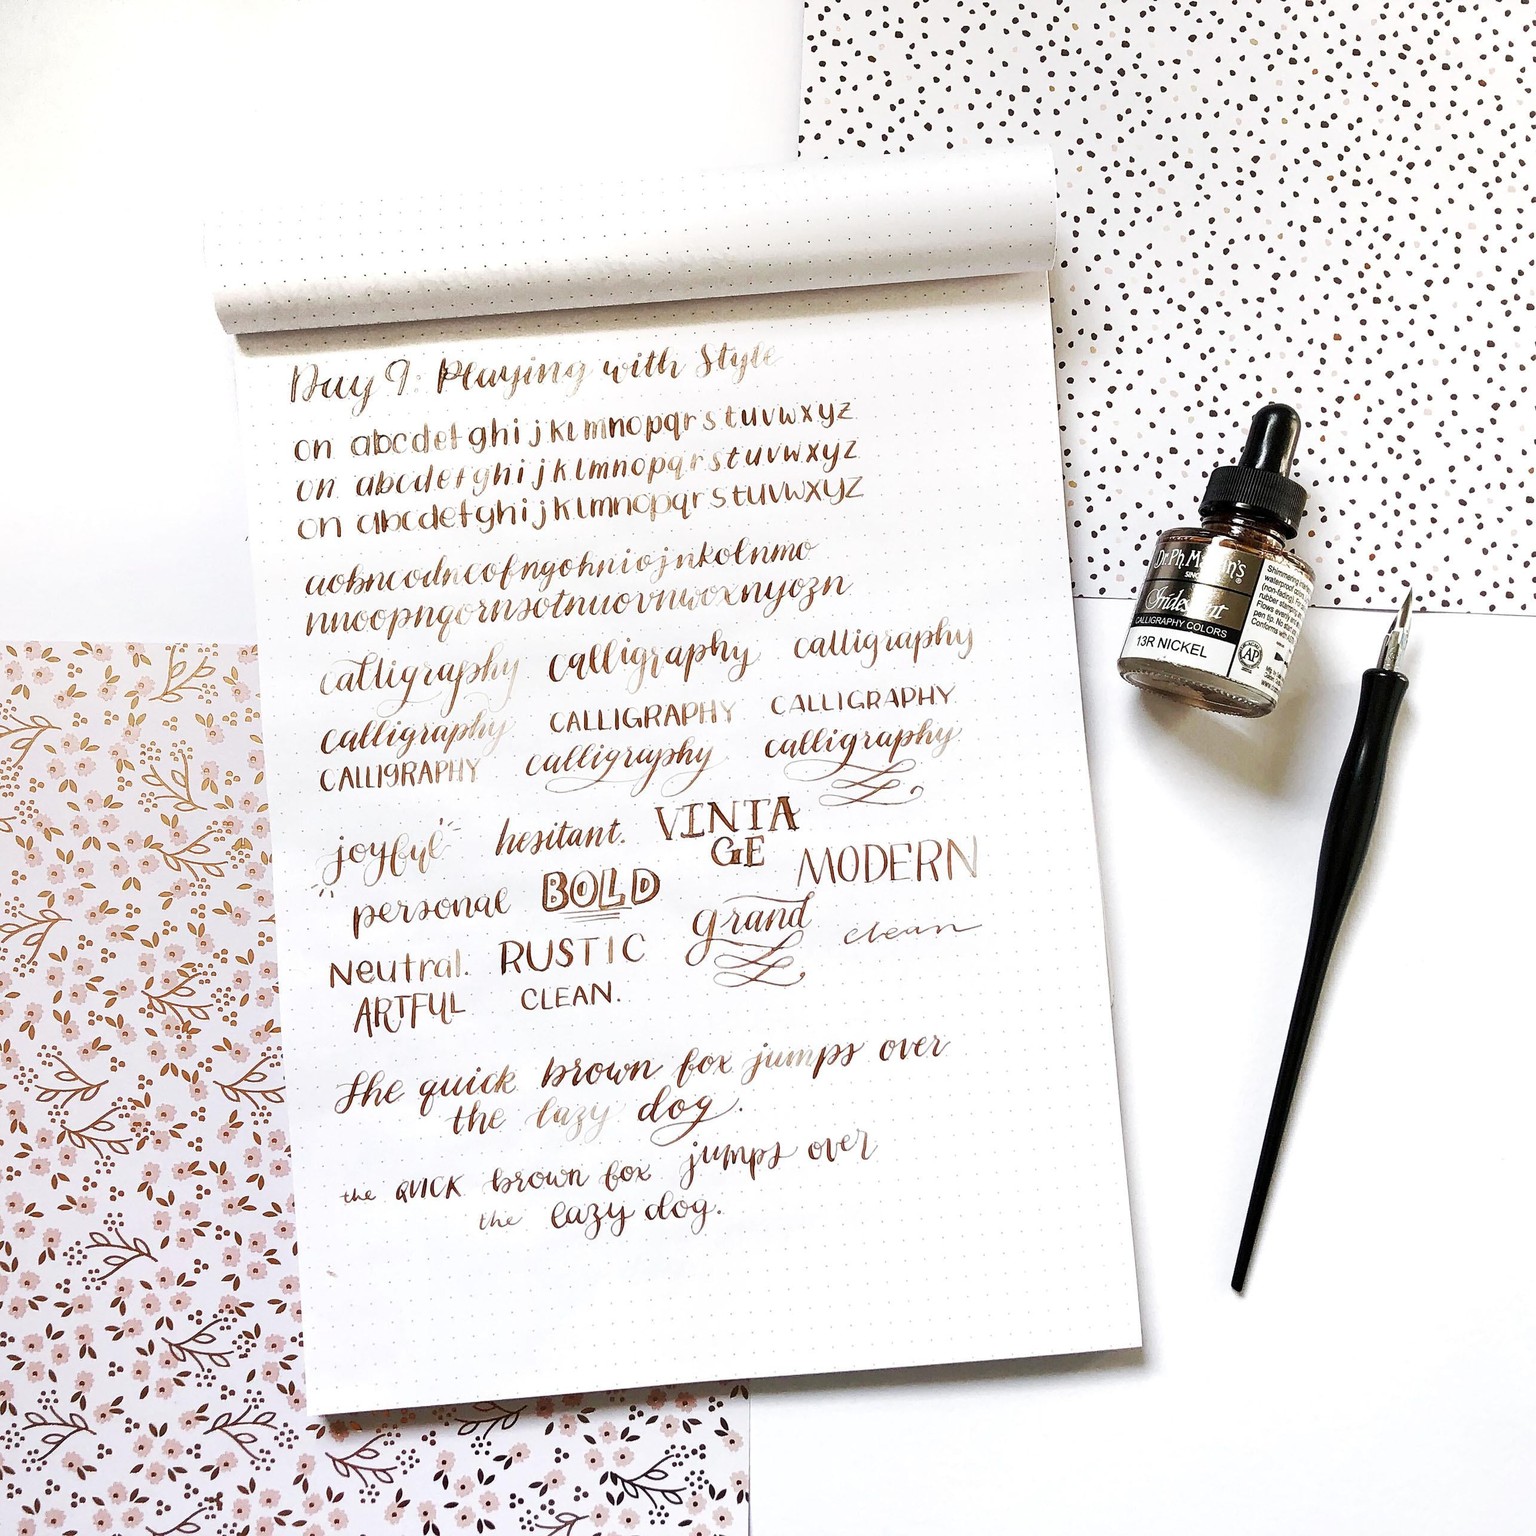 Day 9: Playing with Style
on abcdefghijklmnopqrstuvwxyz
on abcdefghijklmnopqrstuvwxyz
on abcdefghijklmnopqrstuvwxyz
aobncodneofngohniojnkolnmo
nnoopnqornsotnuovnwoxnyozn
calligraphy calligraphy calligraphy
calligraphy CALLIGRAPHY CALLIGRAPHY
CALLIGRAPHY calligraphy calligraphy
joyful hesitant. VINTA
GE
personal BOLD MODERN
Neutral. RUSTIC grand clean
ARTFUL CLEAN.
The quick brown fox jumps over
the lazy dog.
the QUICK brown fox jumps over
the lazy dog.
Dr. Ph. Martin's
SINC
Iridescent
CALLIGRAPHY COLORS
13R NICKEL
AP
Shimmering
waterproof
(non-fading).
rubber stamping
Flows evenly
pen tip. No
Conforms with